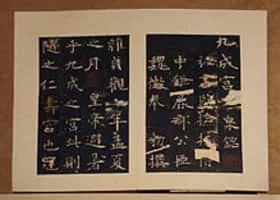 九成宮泉銘
祕書監檢校侍
中鉅鹿郡公臣
魏徵奉勑撰
維貞觀年孟夏
之月皇帝避暑
乎九成之宮此則
隨之仁壽宮也冠